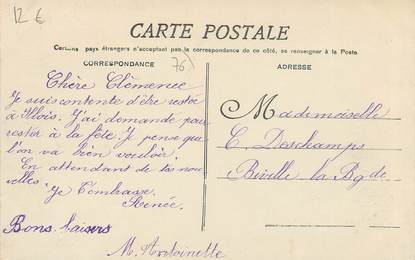 12 €
CARTE POSTALE
Certains pays étrangers n'acceptant pas la correspondance de ce côté, se renseigner à la Poste.
CORRESPONDANCE
76)
ADRESSE
Chère Clémence
Je suis contente d'être restée
à Blois. J'ai demandé pour
rester à la fête. Je pense que
l'on va bien vouloir.
En attendant de tes nou
velles. Je t'embrasse
Renée.
Bons baisers
M. Antoinette
Mademoiselle
C. Deschamps
Biville la Bgde